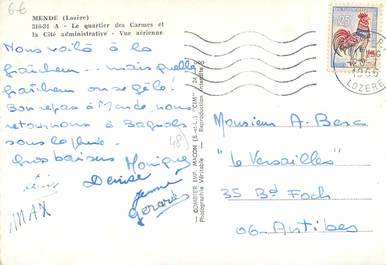 66
MENDE (Lozère)
316-31 A - Le quartier des Carmes et
la Cité administrative - Vue aérienne
Nous voilà à la
fraîcheur... mais quelle
fraîcheur on se gèle!
Bon repas à Mende, nous
retournons à Bagnols
sous la pluie.
Gros baisers Monique
Denise
Jeanne
Gérard
MAX
48
COMBIER IMP. MACON (S.-&-L.) "CIM"
Photographie Véritable - Reproduction interdite
0,25
LOZERE
Monsieur A. Besa
"le Versailles"
35 Bd Foch
06-Antibes